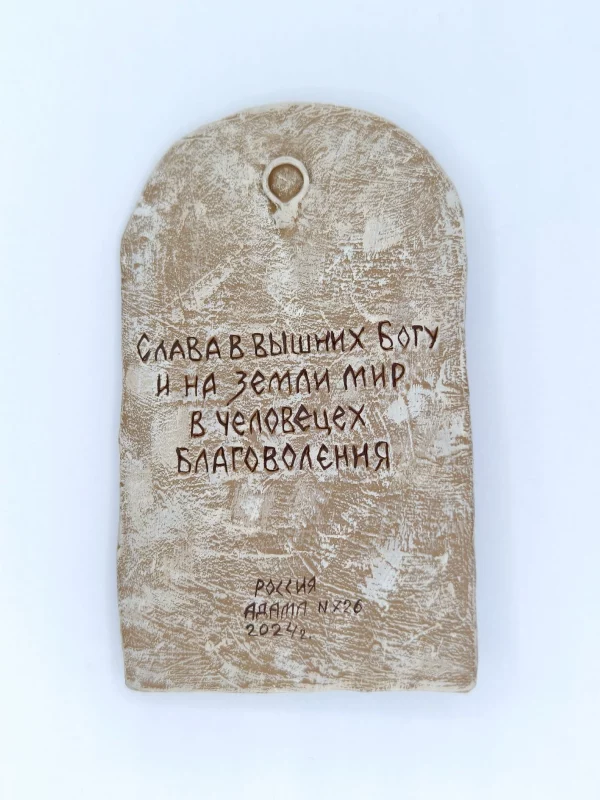 Слава в вышних Богу
и на земли мир
в человецех
благоволения
Россия
Адама N X26
2024г.